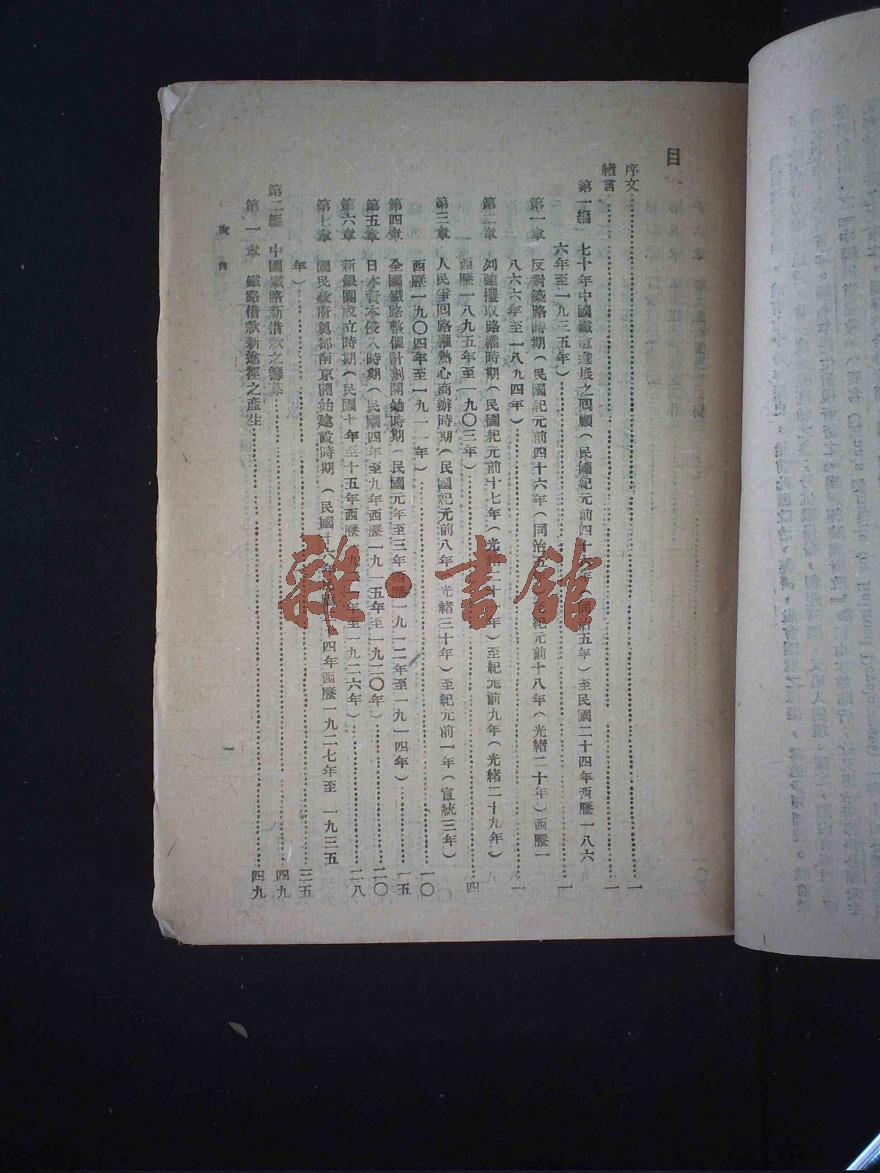 目
序文……一
緒言……一
第一編 七十年中國鐵道進展之回顧（民國紀元前四十 同治五年）至民國二十四年西歷一八六
六年至一九三五年）……一
第一章 反對築路時期（民國紀元前四十六年（同治五 紀元前十八年（光緒二十年）西歷一
八六六年至一八九四年）……一
第二章 列強攫取路權時期（民國紀元前十七年（光緒二十 年）至紀元前九年（光緒二十九年）
西歷一八九五年至一九〇三年）……四
第三章 人民爭回路權熱心商辦時期（民國紀元前八年 光緒三十年）至紀元前一年（宣統三年）
西歷一九〇四年至一九一一年）……一〇
第四章 全國鐵路整個計劃開始時期（民國元年至三年西歷一九一二年至一九一四年）……一五
第五章 日本資本侵入時期（民國四年至九年西歷一九一五年至一九二〇年）……二〇
第六章 新銀團成立時期（民國十年至十五年西歷一九二一年至一九二六年）……二八
第七章 國民政府奠都南京開始建設時期（民國十六年 四年西歷一九二七年至一九三五
年）……三五
第二編 中國鐵路新借款之籌募……四九
第一章 鐵路借款新途徑之產生……四九
目 次
一
雜·書館